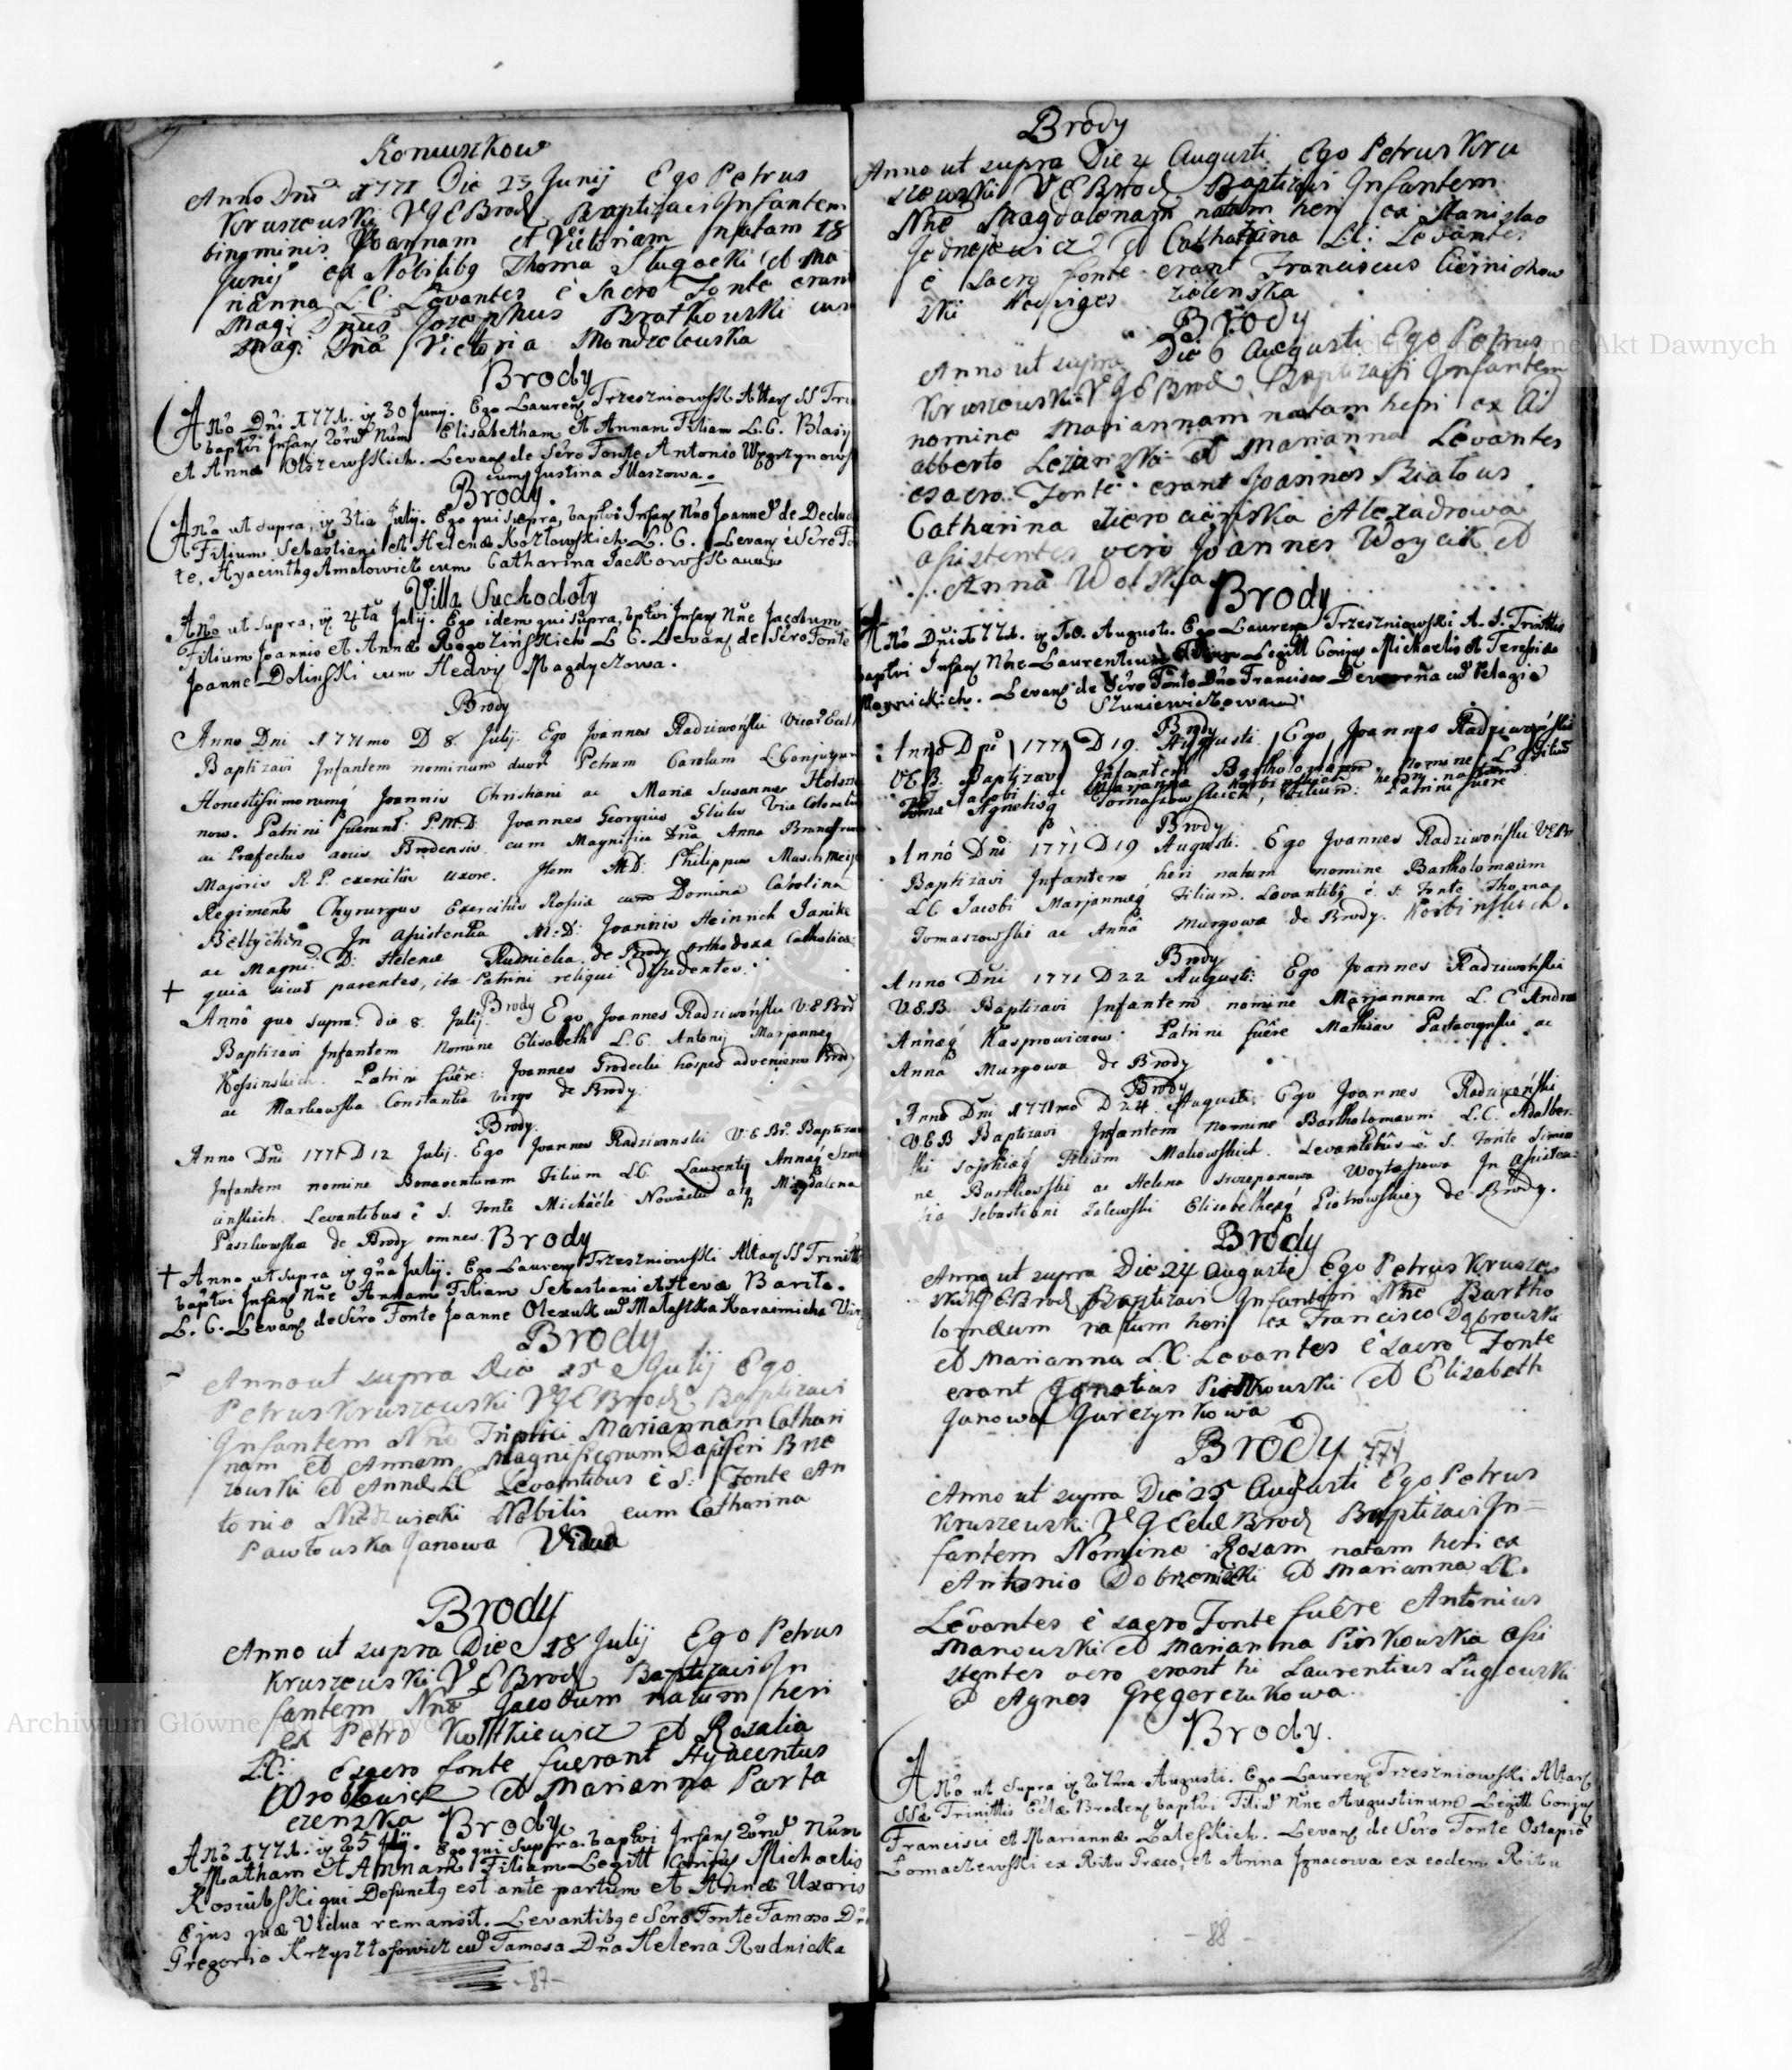 Koniuszkow
Anno Dni 1771 Die 23 Junij Ego Petrus
Kruszewski V E Brod Baptizavi Infantem
binominis Joannam et Victoriam natam 18
Junij ex Nobilibq Thoma Sługocki et Ma
rianna L.C. Levantes e Sacro Fonte erant
Mag: Dnus Josephus Bratkowski cum
Mag: Dna Victoria
Brody
Ano Dni 1771. 30 Junij. Ego Laurens Trzeszniowski Altar SS Trin
baptvi Infans Num Elisabetham et Annam Filiam L.C. Blasij
et Annæ Olszewskich. Levans de Scro Fonte Antonio
cum Justina
Brody.
Ano ut supra, 3tia Julij. Ego qui supra, baptvi Infans Nne Joannem de Deo
Filium Sebastiani et Helenæ Kozłowskich L. C. Levans e Scro Fo
te, Hyacinthq Amatowicz cum Catharina Jackowska
Villa Suchodoły
Ano ut supra, 4ta Julij. Ego idem qui supra, bptvi Infans Nne Jacobum
Filium Joannis et Annæ Rogozińskich L C. Levans de Scro Fonte
Joanne Doliński cum Hedvis Magdyczowa.
Brody
Anno Dni 1771mo D 8 Julij. Ego Joannes Radziwoński Vicar Eccl
Baptizavi Infantem nominum duor Petrum Carolum L. Conjugum
Honestissimorumq Joannis Christiani ac Mariæ Susannæ
now. Patrini fuerunt: P.M.D. Joannes Georgius Vice Colonellus
ac Præfectus arcis Brodensis cum Magnifica Dna Anna
Majoris R. P. exercitus uxore. Item M.D. Philippus
Regiments Chyrurgus Exercitus Rossiæ cum Domina Carolina
In assistentia M: D: Joannis Heinrich Janike
ac Magn: D: Helenæ Rudnicka de Brody orthodoxa Catholica
quia sicut parentes, ita Patrini reliqui dissidentes.
Brody
Anno quo supra. die 8. Julij. Ego Joannes Radziwoński V.E Brd
Baptizavi Infantem Nomine Elisabeth L. C. Antonij Marjannæq
Patrini fuere: Joannes Grodecki hospes adveniens Brody
ac Markowska Constantia Virgo de Brody.
Brody.
Anno Dni 1771 D 12 Julij. Ego Joannes Radziwonski V: E Br: Baptizavi
Infantem nomine Bonaventuram Filium LC. Laurentij Annæq
cinskich. Levantibus e S. Fonte Michaele Nowacki atq Magdalena
Paszkowska de Brody omnes.
Brody
Anno ut supra Julij. Ego Laurens Trzeszniowski Altar SS Trinit
baptvi Infans Nne Annam Filiam Sebastiani et Hevæ Barito.
L. C. Levans de Scro Fonte Joanne Olexuk Karaimicha
Brody
Anno ut supra Die 15 Julij Ego
Petrus Kruszewski V E Brod Baptizavi
Infantem Nne Triplici Mariannam Cathari
nam et Annam Magnificorum Dapiferi
zowski et Annæ LC Levantibus e S: Fonte An
tonio Nobilis cum Catharina
Pawłowska Janowa Vidua
Brody
Anno ut supra Die 18 Julij Ego Petrus
Kruszewski V E Brod Baptizavi In
fantem Nne Jacobum natum heri
ex Petro et Rosalia
L.C. e sacro fonte fuerant Hyacentus
et Marianna Parta
czenska
Brody
Ano 1771. 25 Julij. Ego qui supra. baptvi Infans Num
Martham et Annam Filiam Legitt Conjug Michaelis
qui Defunctq est ante partum et Annæ Uxoris
Ejus quæ Vidua remansit. Levantibq e Scro Fonte Famoso Dno
Gregorio Krzysztofowicz cum Famosa Dna Helena Rudnicka
-87-
Brody
Anno ut supra Die 4 Augusti. Ego Petrus Kru
szewski V E Brod Baptizavi Infantem
Nne Magdalenam natam heri ex Stanislao
et Catharina L.C: Levantes
e Sacro fonte erant Franciscus Cierni chow
ski Zielenska
Brody
Anno ut supra Die 6 Augusti Ego Petrus
Kruszewski V E Brod Baptizavi Infantem
nomine Mariannam natam heri ex Ad
alberto et Marianna Levantes
e sacro Fonte erant Joannes Białous
Catharina Alexadrowa
assistentes vero Joannes Woycik et
Anna Wolska
Brody
Ano Dni 1771. 10. Augusti. Ego Laurens Trzeszniowski A. S. Trinittis
baptvi Infans Nne Laurentium Filium Legitt Conjug Michaelis et Teresiæ
Levans de Scro Fonte Dno Francisco cum Pelagia
Brody
Anno Dni 1771 D 19. Augusti. Ego Joannes Radziwoński
V.E.B. Baptizavi Infantem Bartholomæum nomine L C Filium
Jacobi ac Marjanna heri natum
Thoma Agnetisq Tomaszowskich, Patrini fuere
Brody
Anno Dni 1771 D 19 Augusti. Ego Joannes Radziwoński V.E.Br
Baptizavi Infantem heri natum nomine Bartholomæum
LC Jacobi Marjannæq Filium. Levantibq e S. Fonte Thoma
Tomaszowski ac Anna Murgowa de Brody.
Brody
Anno Dni 1771 D 22 Augusti: Ego Joannes Radziwoński
V.E.B. Baptizavi Infantem nomine Marjannam L. C Andreæ
Annæq Kasprowiczow. Patrini fuere Mathias ac
Anna Murgowa de Brody
Brody
Anno Dni 1771mo D 24. Augusti. Ego Joannes Radziwoński
V.E.B Baptizavi Infantem nomine Bartholomæum L.C. Adalber-
ti Sophiæq Filium Makowskich. Levantibus e S. Fonte Simeo
ne Bartkowski ac Helena Szczepanowa Woytasowa In Assisten:
tia Sebastiani Zalewski Elisabethæq Piotrowskiey de Brody.
Brody
Anno ut supra Die 24 Augusti Ego Petrus Krusze
wski V E Brod Baptizavi Infantem Nne Bartho
lomæum natum heri ex Francisco Dąbrowski
et Marianna L.C. Levantes e sacro Fonte
erant Ignatius Piotkowski et Elizabeth
Janowa Jurczynkowa
Brody
Anno ut supra Die 25 Augusti Ego Petrus
Kruszewski V E Brod Baptizavi In-
fantem Nomine Rosam natam heri ex
Antonio et Marianna LC.
Levantes e sacro Fonte fuere Antonius
Manowski et Marianna Pioskowska assi
stentes vero erant hi Laurentius Ługowski
et Agnes Gregorczukowa.
Brody.
Ano ut supra Augusti. Ego Laurens Trzeszniowski Altar
SSæ Trinittis Eclæ Brodens baptvi Filium Nne Augustinum Legitt Conjug
Francisci et Mariannæ Zaleskich. Levans de Scro Fonte Ostapio
Łomaczewski ex Ritu Græco, et Anna Ignacowa ex eodem Ritu
-88-
Archiwum Główne Akt Dawnych
Archiwum Główne Akt Dawnych